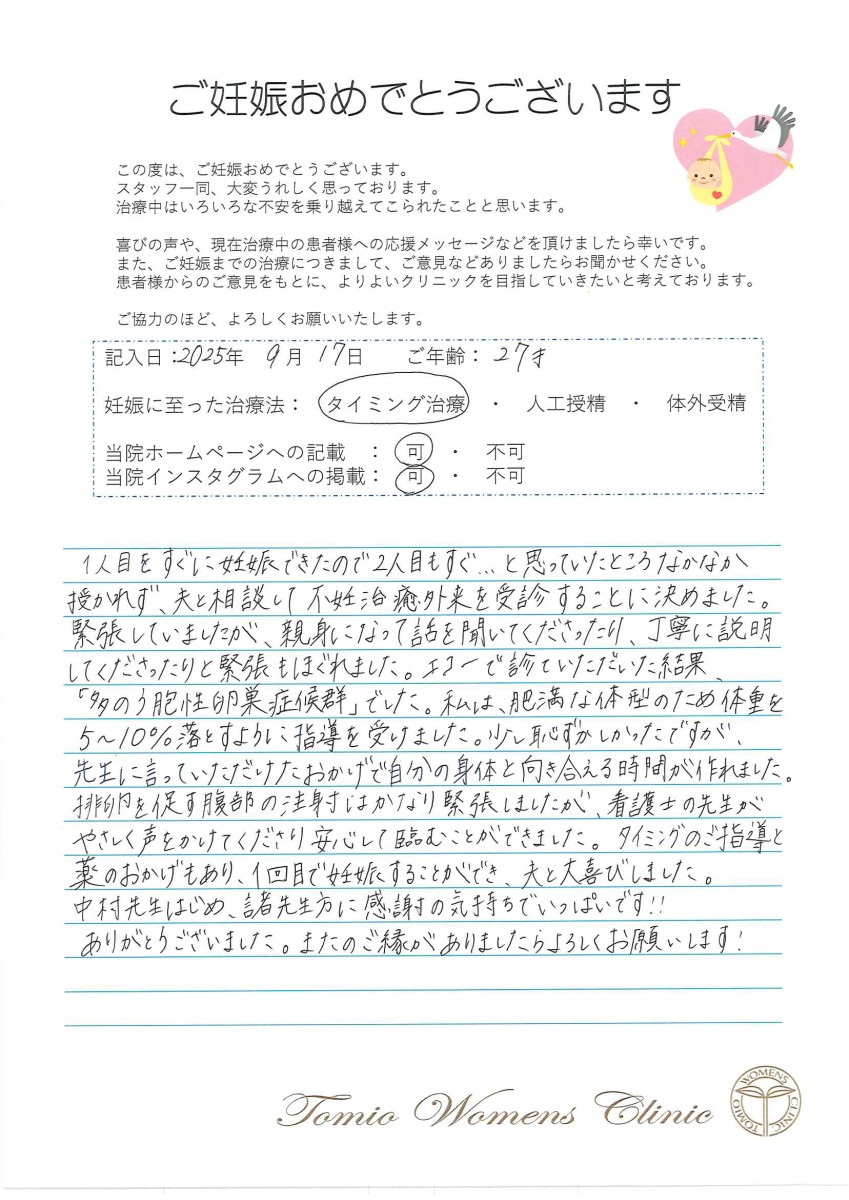 ご妊娠おめでとうございます
この度は、ご妊娠おめでとうございます。
スタッフ一同、大変うれしく思っております。
治療中はいろいろな不安を乗り越えてこられたことと思います。
喜びの声や、現在治療中の患者様への応援メッセージなどを頂けましたら幸いです。
また、ご妊娠までの治療につきまして、ご意見などありましたらお聞かせください。
患者様からのご意見をもとに、よりよいクリニックを目指していきたいと考えております。
ご協力のほど、よろしくお願いいたします。
記入日：2025年 9月 17日 ご年齢： 27才
妊娠に至った治療法： タイミング治療 ・ 人工授精 ・ 体外受精
当院ホームページへの記載 ： 可 ・ 不可
当院インスタグラムへの掲載： 可 ・ 不可
1人目をすぐに妊娠できたので2人目もすぐ…と思っていたところなかなか
授かれず、夫と相談して不妊治癒外来を受診することに決めました。
緊張していましたが、親身になって話を聞いてくださったり、丁寧に説明
してくださったりと緊張もほぐれました。エコーで診ていただいた結果、
「多のう胞性卵巣症候群」でした。私は、肥満な体型のため体重を
5〜10%落とすように指導を受けました。少し恥ずかしかったですが、
先生に言っていただけたおかげで自分の身体と向き合える時間が作れました。
排卵を促す腹部の注射はかなり緊張しましたが、看護士の先生が
やさしく声をかけてくださり安心して臨むことができました。タイミングのご指導と
薬のおかげもあり、1回目で妊娠することができ、夫と大喜びしました。
中村先生はじめ、諸先生方に感謝の気持ちでいっぱいです!!
ありがとうございました。またのご縁がありましたらよろしくお願いします!
Tomio Womens Clinic
WOMENS CLINIC TOMIO